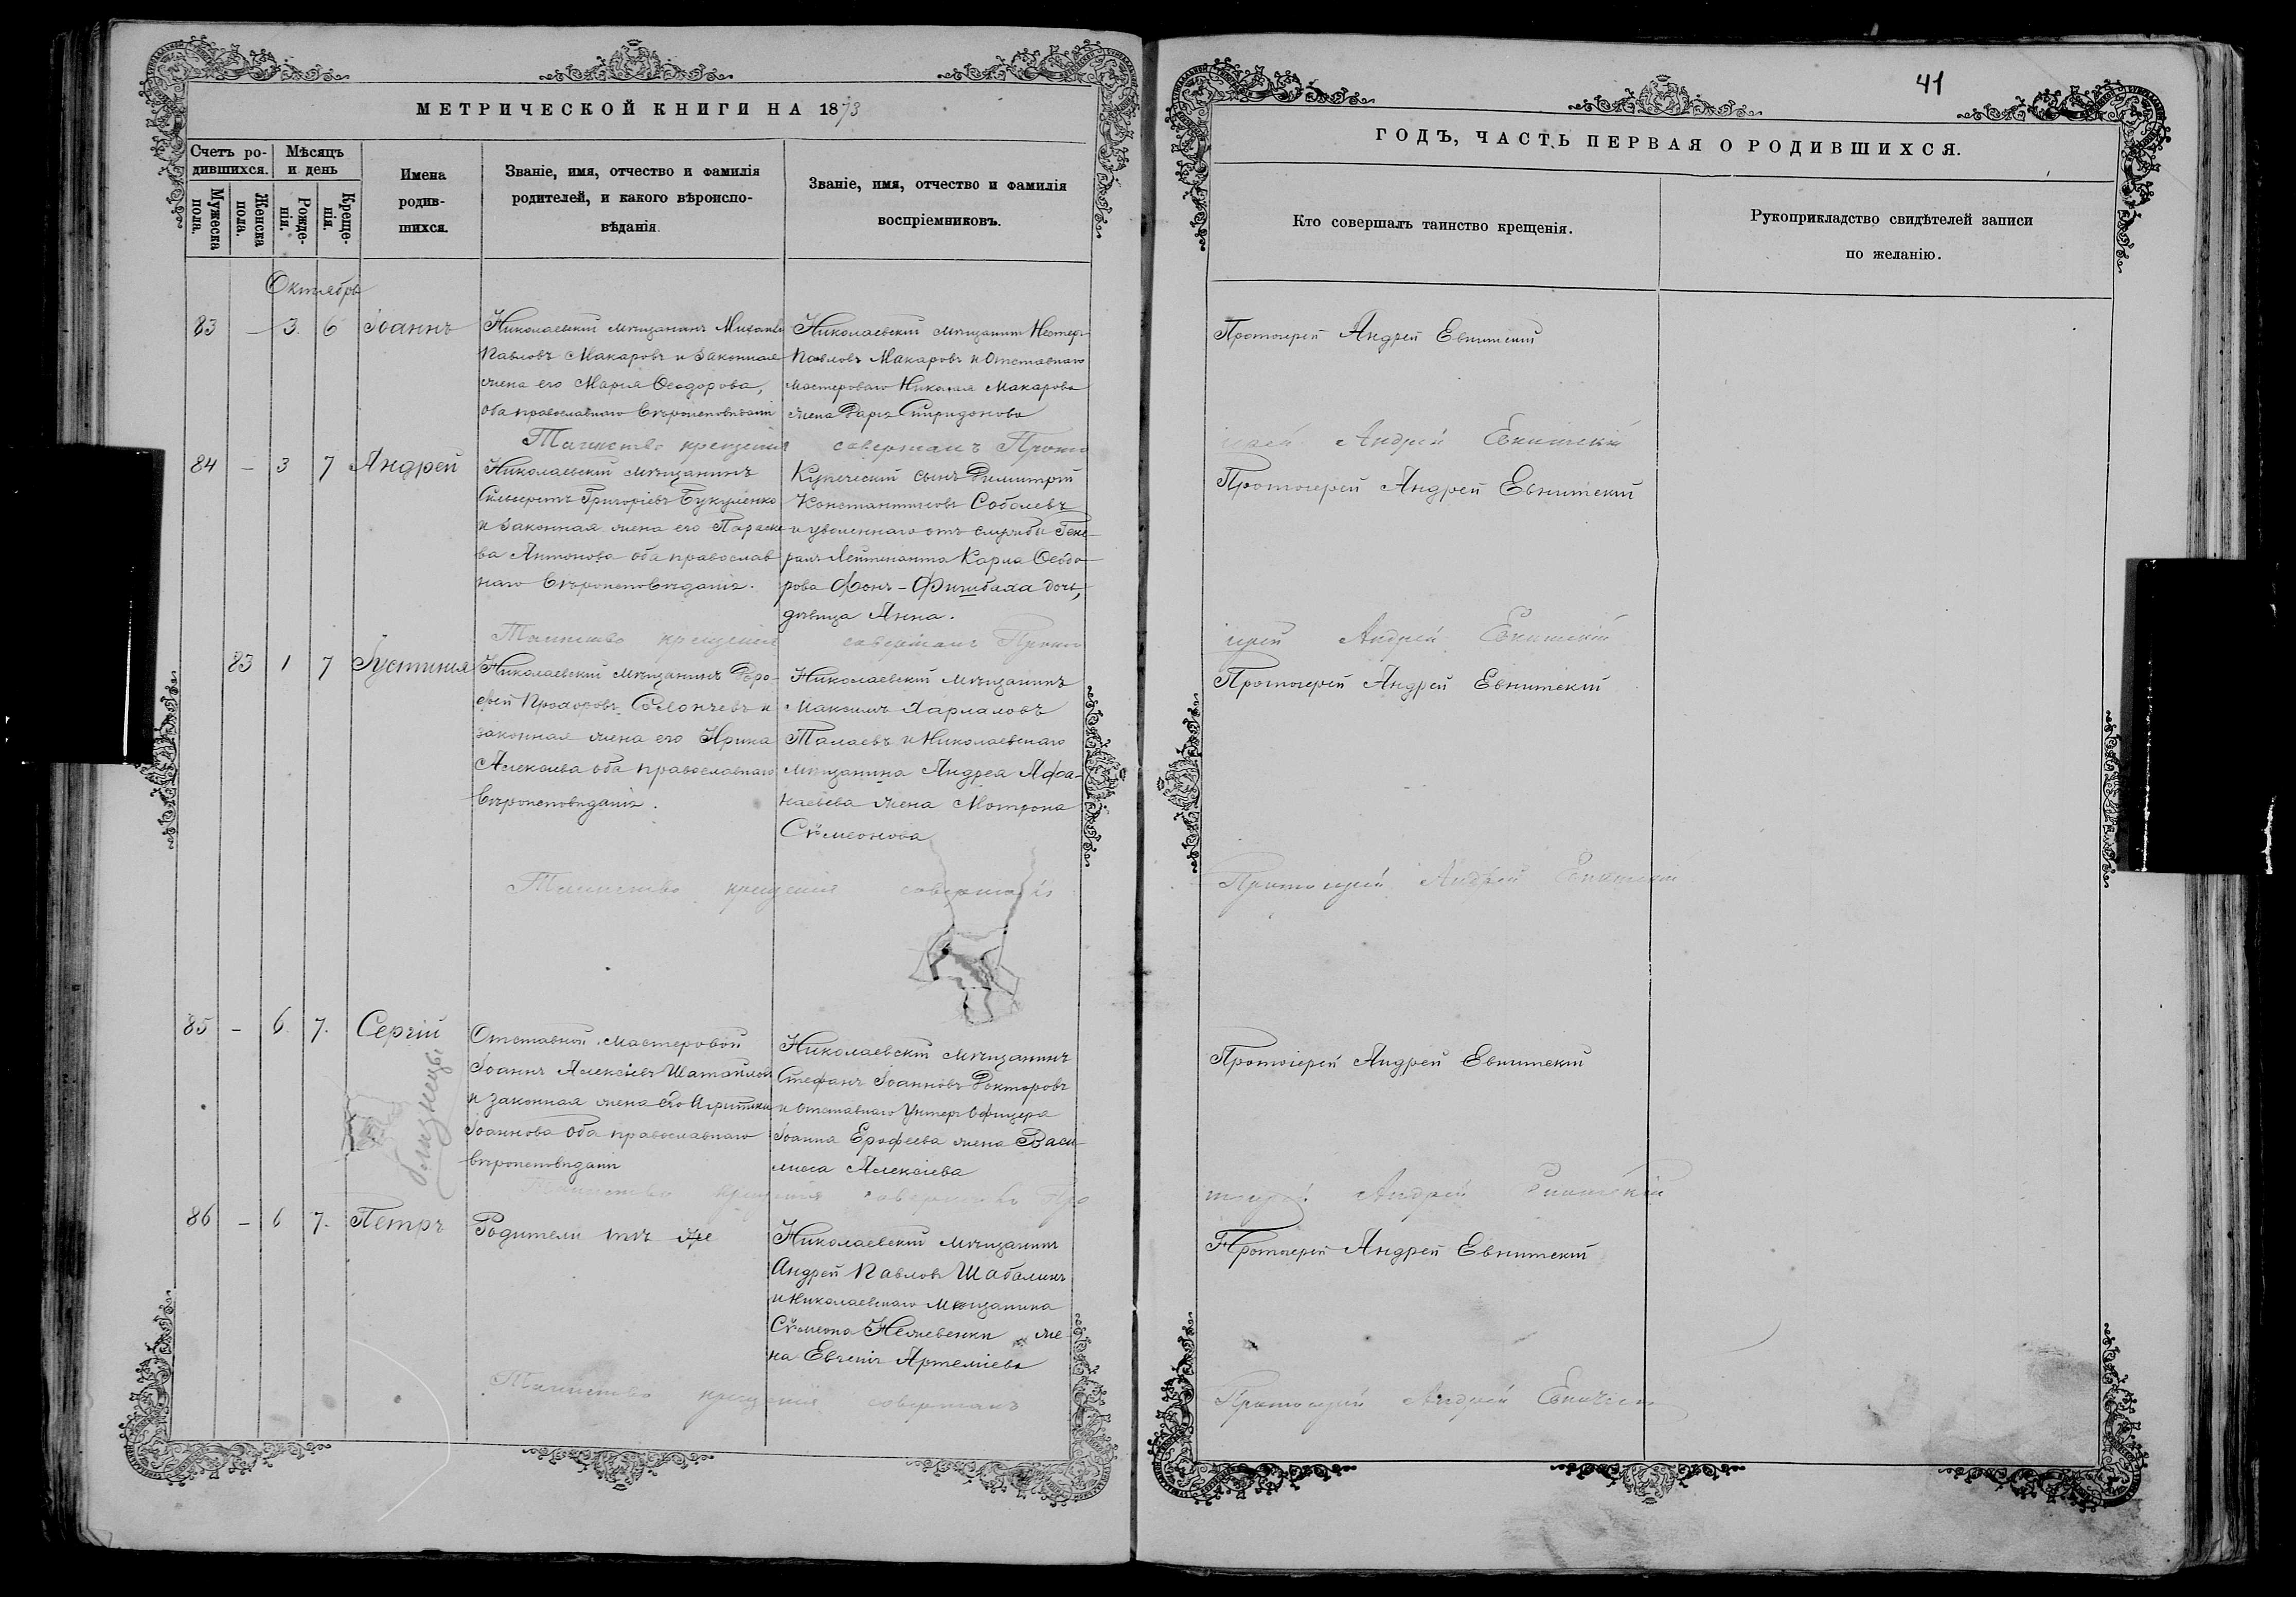 41
МЕТРИЧЕСКОЙ КНИГИ НА 1873
ГОДЪ, ЧАСТЬ ПЕРВАЯ О РОДИВШИХСЯ.
Счетъ ро-
дившихся.
Мужеска
пола.
Женска
пола.
Мѣсяцъ
и день
Рожде-
нія.
Креще-
нія.
Имена
родив-
шихся.
Званіе, имя, отчество и фамилія
родителей, и какого вѣроиспо-
вѣданія.
Званіе, имя, отчество и фамилія
воспріемниковъ.
Кто совершалъ таинство крещенія.
Рукоприкладство свидѣтелей записи
по желанію.
Октябрь
83 – 3. 6 Іоаннъ
Николаевскій мѣщанинъ Михаилъ
Павловъ Макаровъ и законная
жена его Марія Ѳеодорова,
оба православнаго вѣроисповѣданія
Николаевскій мѣщанинъ Несторъ
Павловъ Макаровъ и Отставнаго
мастероваго Николая Макарова
жена Дарія Спиридонова
Протоіерей Андрей
Таинство крещенія совершалъ Прото
іерей Андрей
84 – 3 7 Андрей
Николаевскій мѣщанинъ
Сильверстъ Григоріевъ Букуленко
и законная жена его Параске
ва Антонова оба православ
наго вѣроисповѣданія.
Купеческій сынъ Димитрій
Константиновъ Соболевъ
и уволеннаго отъ службы Гене-
ралъ Лейтенанта Карла Ѳеодо-
рова Фонъ-Фишбаха дочь,
дѣвица Анна.
Протоіерей Андрей
Таинство крещенія совершалъ Прото
іерей Андрей
83 1 7 Іустинія
Николаевскій мѣщанинъ Доро-
ѳей Прохоровъ и
законная жена его Ирина
Алексіева оба православнаго
вѣроисповѣданія.
Николаевскій мѣщанинъ
Максимъ Харламовъ
Талаевъ и Николаевскаго
мѣщанина Андрея Афа-
насьева жена Мотрона
Сѵмеонова
Протоіерей Андрей
Таинство крещенія совершалъ
Протоіерей Андрей
85 – 6. 7. Сергій
близнецы
Отставной мастеровой
Іоаннъ Алексіевъ
и законная жена его
Іоаннова оба православнаго
вѣроисповѣданія
Николаевскій мѣщанинъ
Стефанъ Іоанновъ Докторовъ
и отставнаго Унтеръ Офицера
Іоанна Ерофеева жена Васи-
лиса Алексіева
Протоіерей Андрей
Таинство крещенія совершалъ Про
тоіерей Андрей
86 – 6 7. Петръ
Родители тѣ же
Николаевскій мѣщанинъ
Андрей Павловъ Шабалинъ
и Николаевскаго мѣщанина
Сѵмеона же-
на Евгенія Артеміева
Протоіерей Андрей
Таинство крещенія совершалъ
Протоіерей Андрей